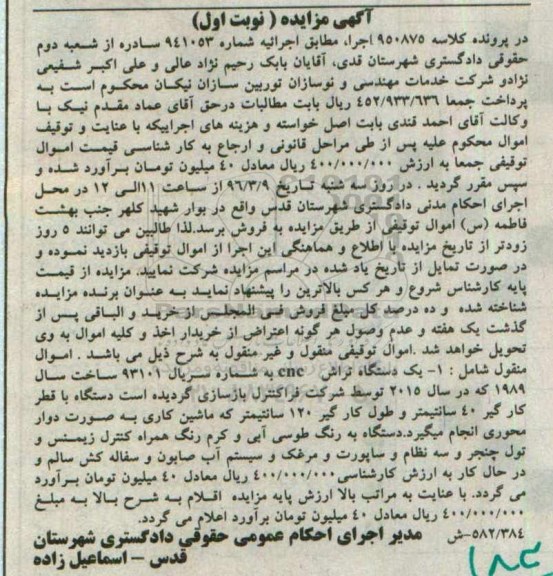 آگهی مزایده ( نوبت اول)
در پرونده کلاسه ۹۵۰۸۷۵ اجرا، مطابق اجرائیه شماره ۹۴۱۰۵۳ سادره از شعبه دوم
حقوقی دادگستری شهرستان قدی، آقایان بابک رحیم نژاد عالی و علی اکبر شفیعی
نژادو شرکت خدمات مهندسی و نوسازان توربین سازان نیکان محکوم است به
پرداخت جمعا ۴۵۲/۹۳۳/۶۳۶ ریال بابت مطالبات درحق آقای عماد مقدم نیک با
وکالت آقای احمد قندی بابت اصل خواسته و هزینه های اجراییکه با عنایت و توقیف
اموال محکوم علیه پس از طی مراحل قانونی و ارجاع به کار شناسی قیمت اموال
توقیفی جمعا به ارزش ۴۰۰/۰۰۰/۰۰۰ ریال معادل ۴۰ میلیون تومان برآورد شده و
سپس مقرر گردید . در روز سه شنبه تاریخ ۹۶/۳/۹ از ساعت ۱۱الی ۱۲ در محل
اجرای احکام مدنی دادگستری شهرستان قدس واقع در بوار شهید کلهر جنب بهشت
فاطمه (س) اموال توقیفی از طریق مزایده به فروش برسد.لذا طالبین می توانند ۵ روز
زودتر از تاریخ مزایده با اطلاع و هماهنگی این اجرا از اموال توقیفی بازدید نموده و
در صورت تمایل از تاریخ یاد شده در مراسم مزایده شرکت نمایند. مزایده از قیمت
پایه کارشناس شروع و هر کس بالاترین را پیشنهاد نماید به عنوان برنده مزایده
شناخته شده و ده درصد کل مبلغ فروش فی المجلس از خرید و الباقی پس از
گذشت یک هفته و عدم وصول هر گونه اعتراض از خریدار اخذ و کلیه اموال به وی
تحویل خواهد شد .اموال توقیفی منقول و غیر منقول به شرح ذیل می باشد . اموال
منقول شامل : ۱- یک دستگاه تراش cnc به شماره سریال ۹۳۱۰۱ ساخت سال
۱۹۸۹ که در سال ۲۰۱۵ توسط شرکت فراکنترل بازسازی گردیده است دستگاه با قطر
کار گیر ۴۰ سانتیمتر و طول کار گیر ۱۲۰ سانتیمتر که ماشین کاری به صورت دوار
محوری انجام میگیرد.دستگاه به رنگ طوسی آبی و کرم رنگ همراه کنترل زیمنس و
تول چنجر و سه نظام و ساپورت و مرغک و سیستم آب صابون و سفاله کش سالم و
در حال کار به ارزش کارشناسی ۴۰۰/۰۰۰/۰۰۰ ریال معادل ۴۰ میلیون تومان برآورد
می گردد. با عنایت به مراتب بالا ارزش پایه مزایده اقلام به شرح بالا به مبلغ
۴۰۰/۰۰۰/۰۰۰ ریال معادل ۴۰ میلیون تومان برآورد اعلام می گردد.
۵۸۲/۳۸۴-ش مدیر اجرای احکام عمومی حقوقی دادگستری شهرستان
قدس – اسماعیل زاده